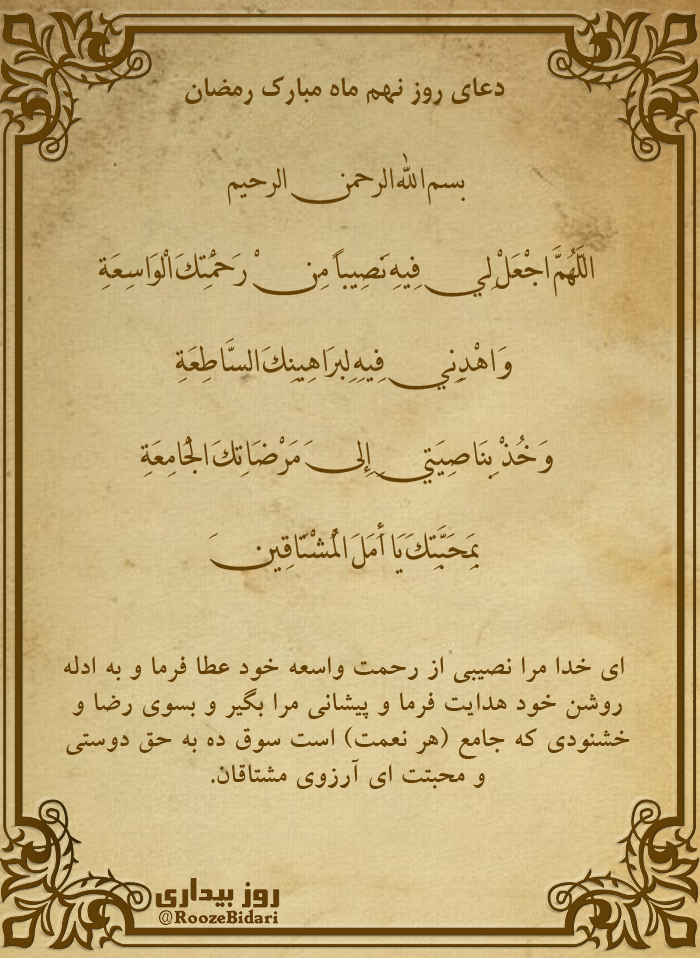 دعای روز نهم ماه مبارک رمضان
بسم الله الرحمن الرحیم
اللَّهُمَّ اجْعَلْ لِي فِيهِ نَصِيباً مِنْ رَحْمَتِكَ الْوَاسِعَةِ
وَ اهْدِنِي فِيهِ لِبَرَاهِينِكَ السَّاطِعَةِ
وَ خُذْ بِنَاصِيَتِي إِلَى مَرْضَاتِكَ الْجَامِعَةِ
بِمَحَبَّتِكَ يَا أَمَلَ الْمُشْتَاقِينَ
ای خدا مرا نصیبی از رحمت واسعه خود عطا فرما و به ادله
روشن خود هدایت فرما و پیشانی مرا بگیر و بسوی رضا و
خشنودی که جامع (هر نعمت) است سوق ده به حق دوستی
و محبتت ای آرزوی مشتاقان.
روز بیداری
@RoozeBidari